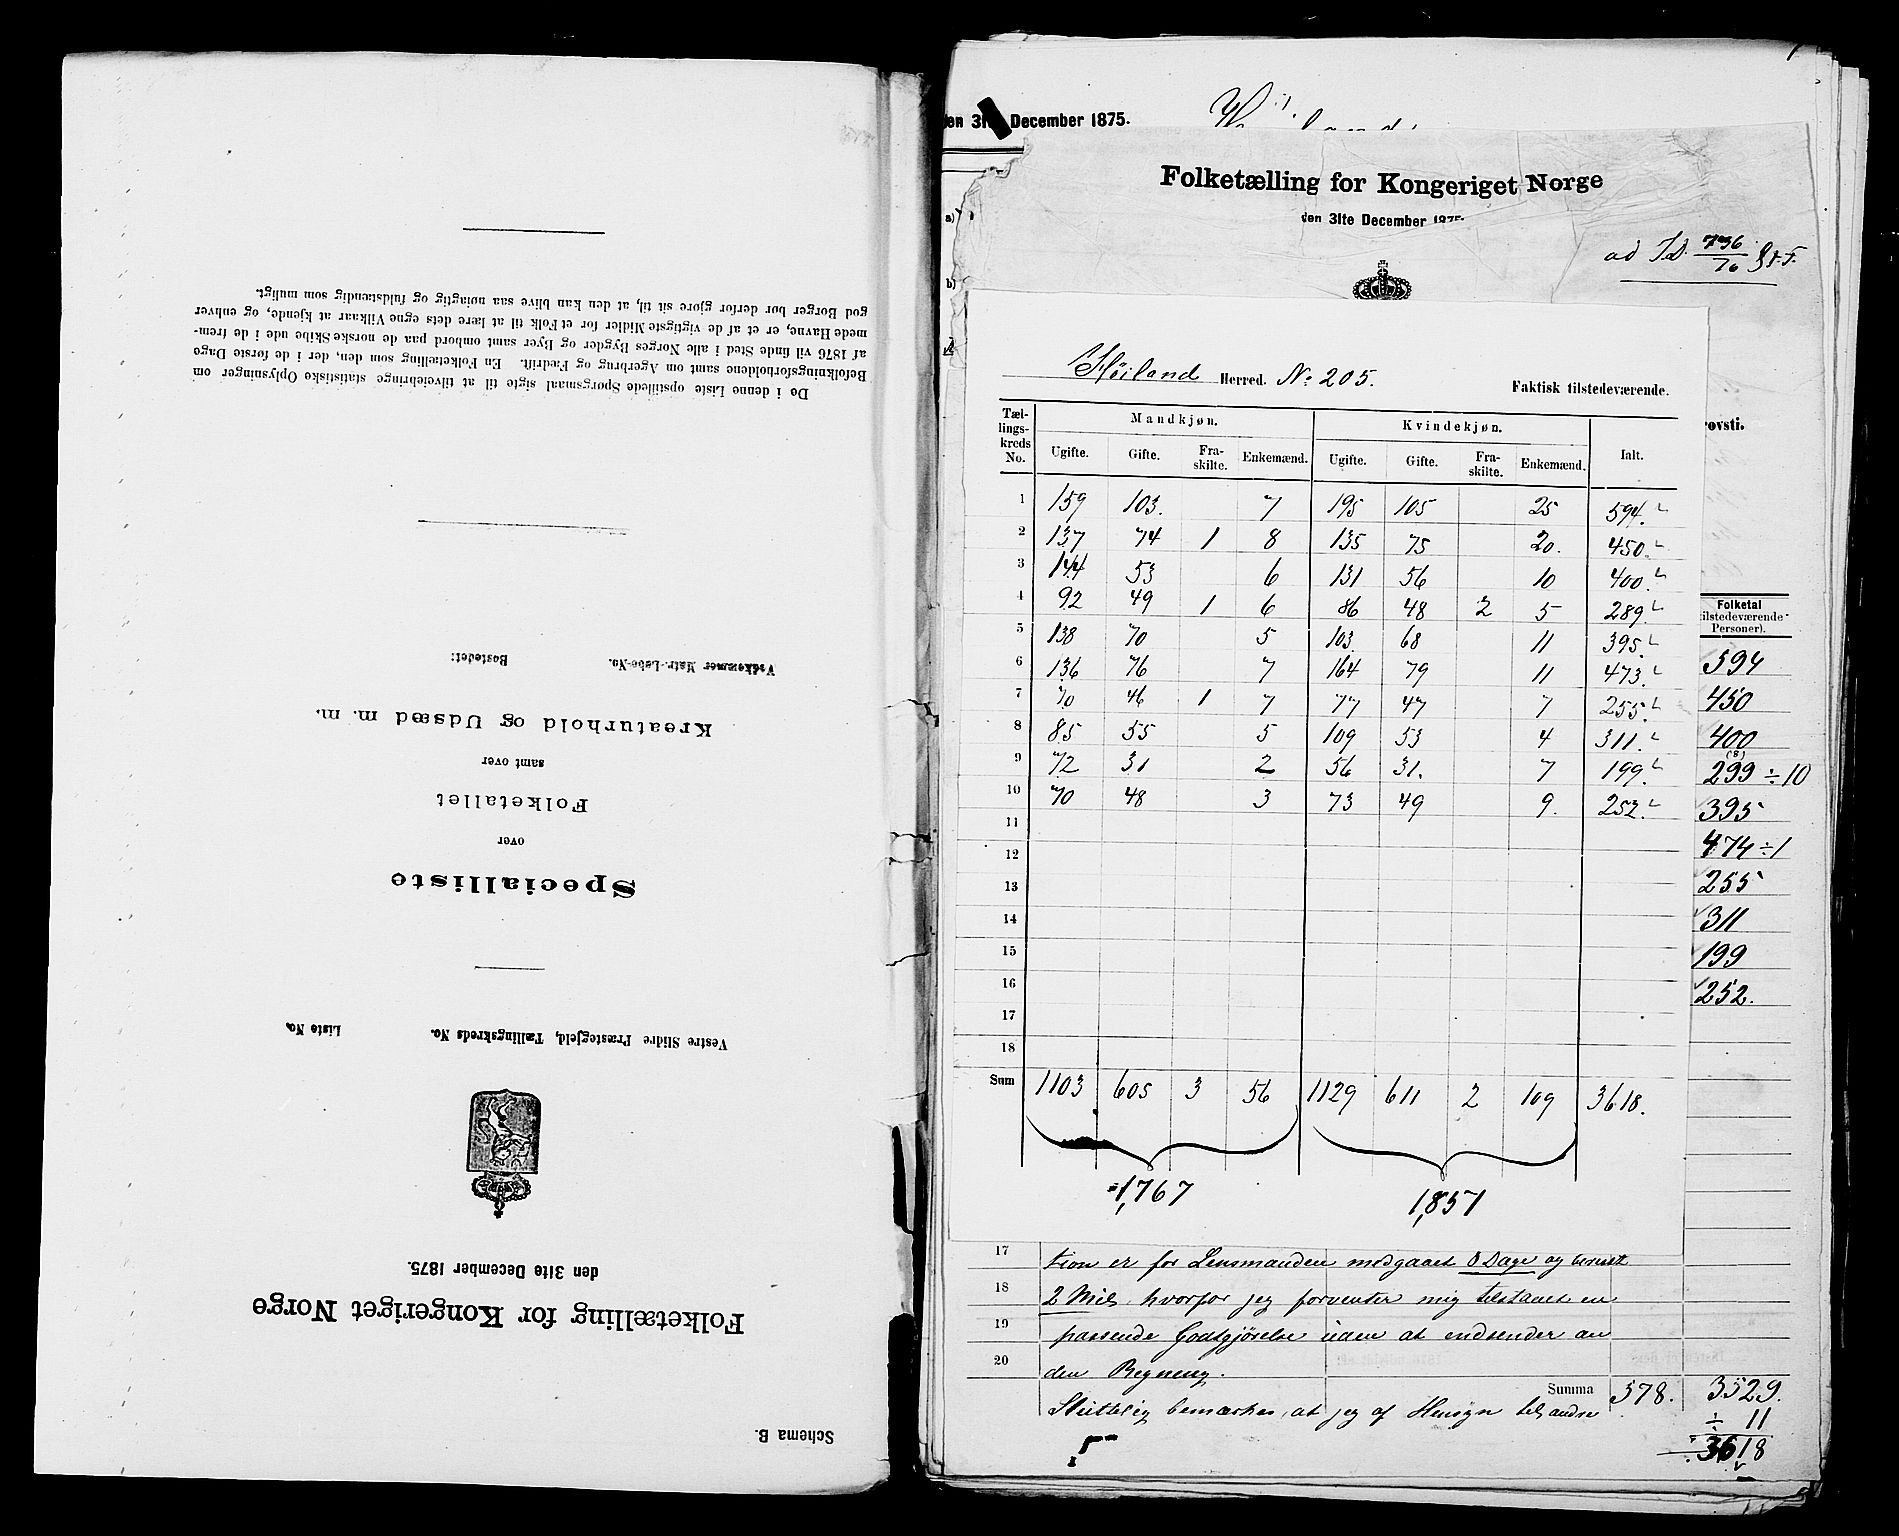 Folketælling for Kongeriget Norge
den 31te December 1875.
Vestre Slidre Præstegjeld, Tællingskreds No. Liste No.
Specialliste
over
Folketallet
samt over
Kreaturhold og Udsæd m. m.
Vedkommer Matr.-Løbe-No. Bostedet:
Do i denne Liste opstillede Spørgsmaal sigte til at tilveiebringe statistiske Oplysninger om
Befolkningsforholdene samt om Agerbrug og Fædrift. En Folketælling som den, der i de første Dage
af 1876 vil finde Sted i alle Norges Bygder og Byer samt ombord paa de norske Skibe ude i de frem-
mede Havne, er et af de vigtigste Midler for et Folk til at lære dets egne Vilkaar at kjende, og enhver
god Borger bør derfor gjøre sit til, at den kan blive saa nøiagtig og fuldstændig som muligt.
Schema B.
December 1875.
Folketælling for Kongeriget Norge
den 31te December 1875.
ad J.D. 736/76
Høiland Herred. No. 205.
Faktisk tilstedeværende.
Tæl-
lings-
kreds
No.
Mandkjøn. Kvindekjøn. Ialt.
Ugifte. Gifte. Fra-
skilte. Enkemænd. Ugifte. Gifte. Fra-
skilte. Enkemænd.
1 159 103. 7 195 105 25 594.
2 137 74 1 8 135 75 20. 450.
3 144 53 6 131 56 10 400.
4 92 49 1 6 86 48 2 5 289.
5 138 70 5 103 68 11 395.
6 136 76 7 164 79 11 473.
7 70 46 1 7 77 47 7 255.
8 85 55 5 109 53 4 311.
9 72 31 2 56 31. 7 199.
10 70 48 3 73 49 9. 252.
11
12
13
14
15
16
17
18
Sum 1103 605 3 56 1129 611 2 109 3618.
1,767 1,851
ovsti.
Folketal
tilstedeværende
Personer).
594
450
400
299 ÷ 10
395
474 ÷ 1
255
311
199
252.
17 tion er for Lensmanden medgaaet 8 Dage og bereist
18 2 Mil, hvorfor jeg forventer mig tilstaaet en
19 passende Godtgjørelse uden at endsender an
20 den Regning.
Summa 578. 3529.
Sluttelig bemærkes, at jeg af Hensyn til andre
÷ 11
3618